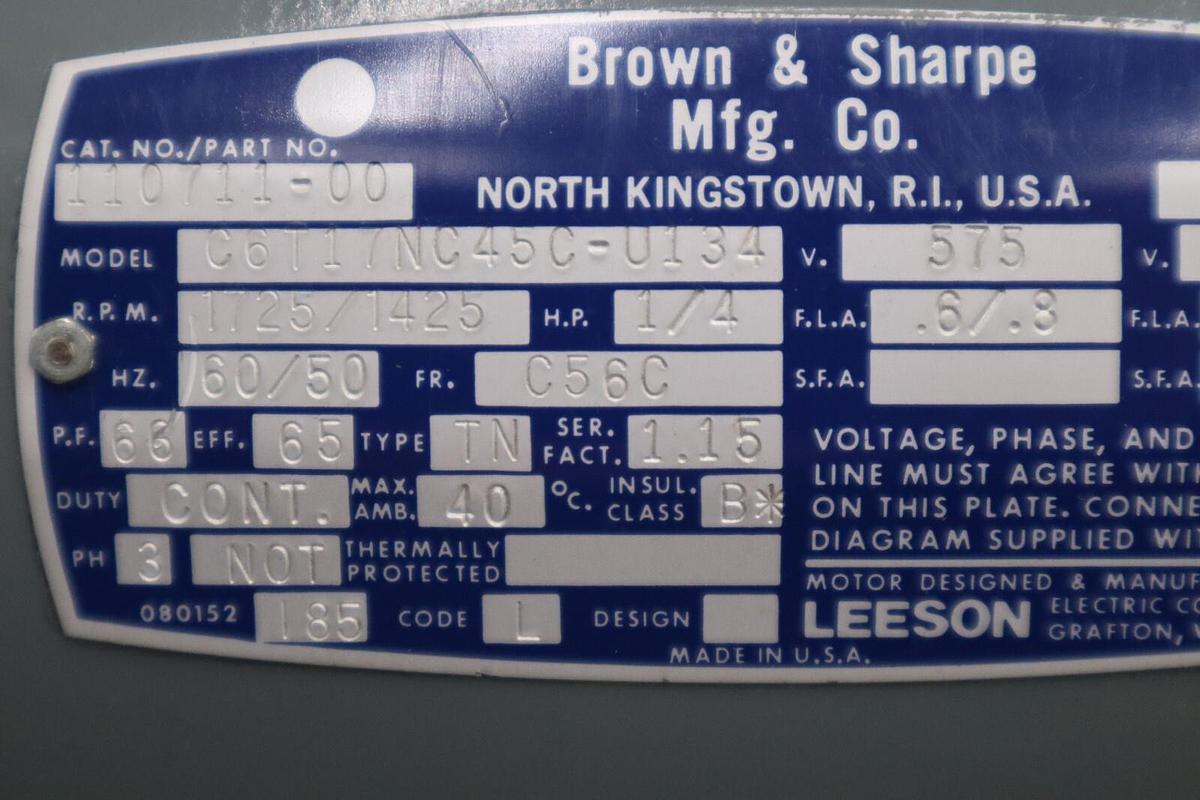 Brown & Sharpe
Mfg. Co.
NORTH KINGSTOWN, R.I., U.S.A.
CAT. NO./PART NO.
110711-00
MODEL C6T17NC45C-U134 V. 575 V.
R.P.M. 1725/1425 H.P. 1/4 F.L.A. .6/.8 F.L.A.
HZ. 60/50 FR. C56C S.F.A. S.F.A.
P.F. 66 EFF. 65 TYPE TN SER. FACT. 1.15
DUTY CONT. MAX. AMB. 40 °C. INSUL. CLASS B*
PH 3 NOT THERMALLY PROTECTED
080152 185 CODE L DESIGN
VOLTAGE, PHASE, AND
LINE MUST AGREE WIT
ON THIS PLATE. CONNE
DIAGRAM SUPPLIED WIT
MOTOR DESIGNED & MANUF
LEESON ELECTRIC CO
GRAFTON,
MADE IN U.S.A.